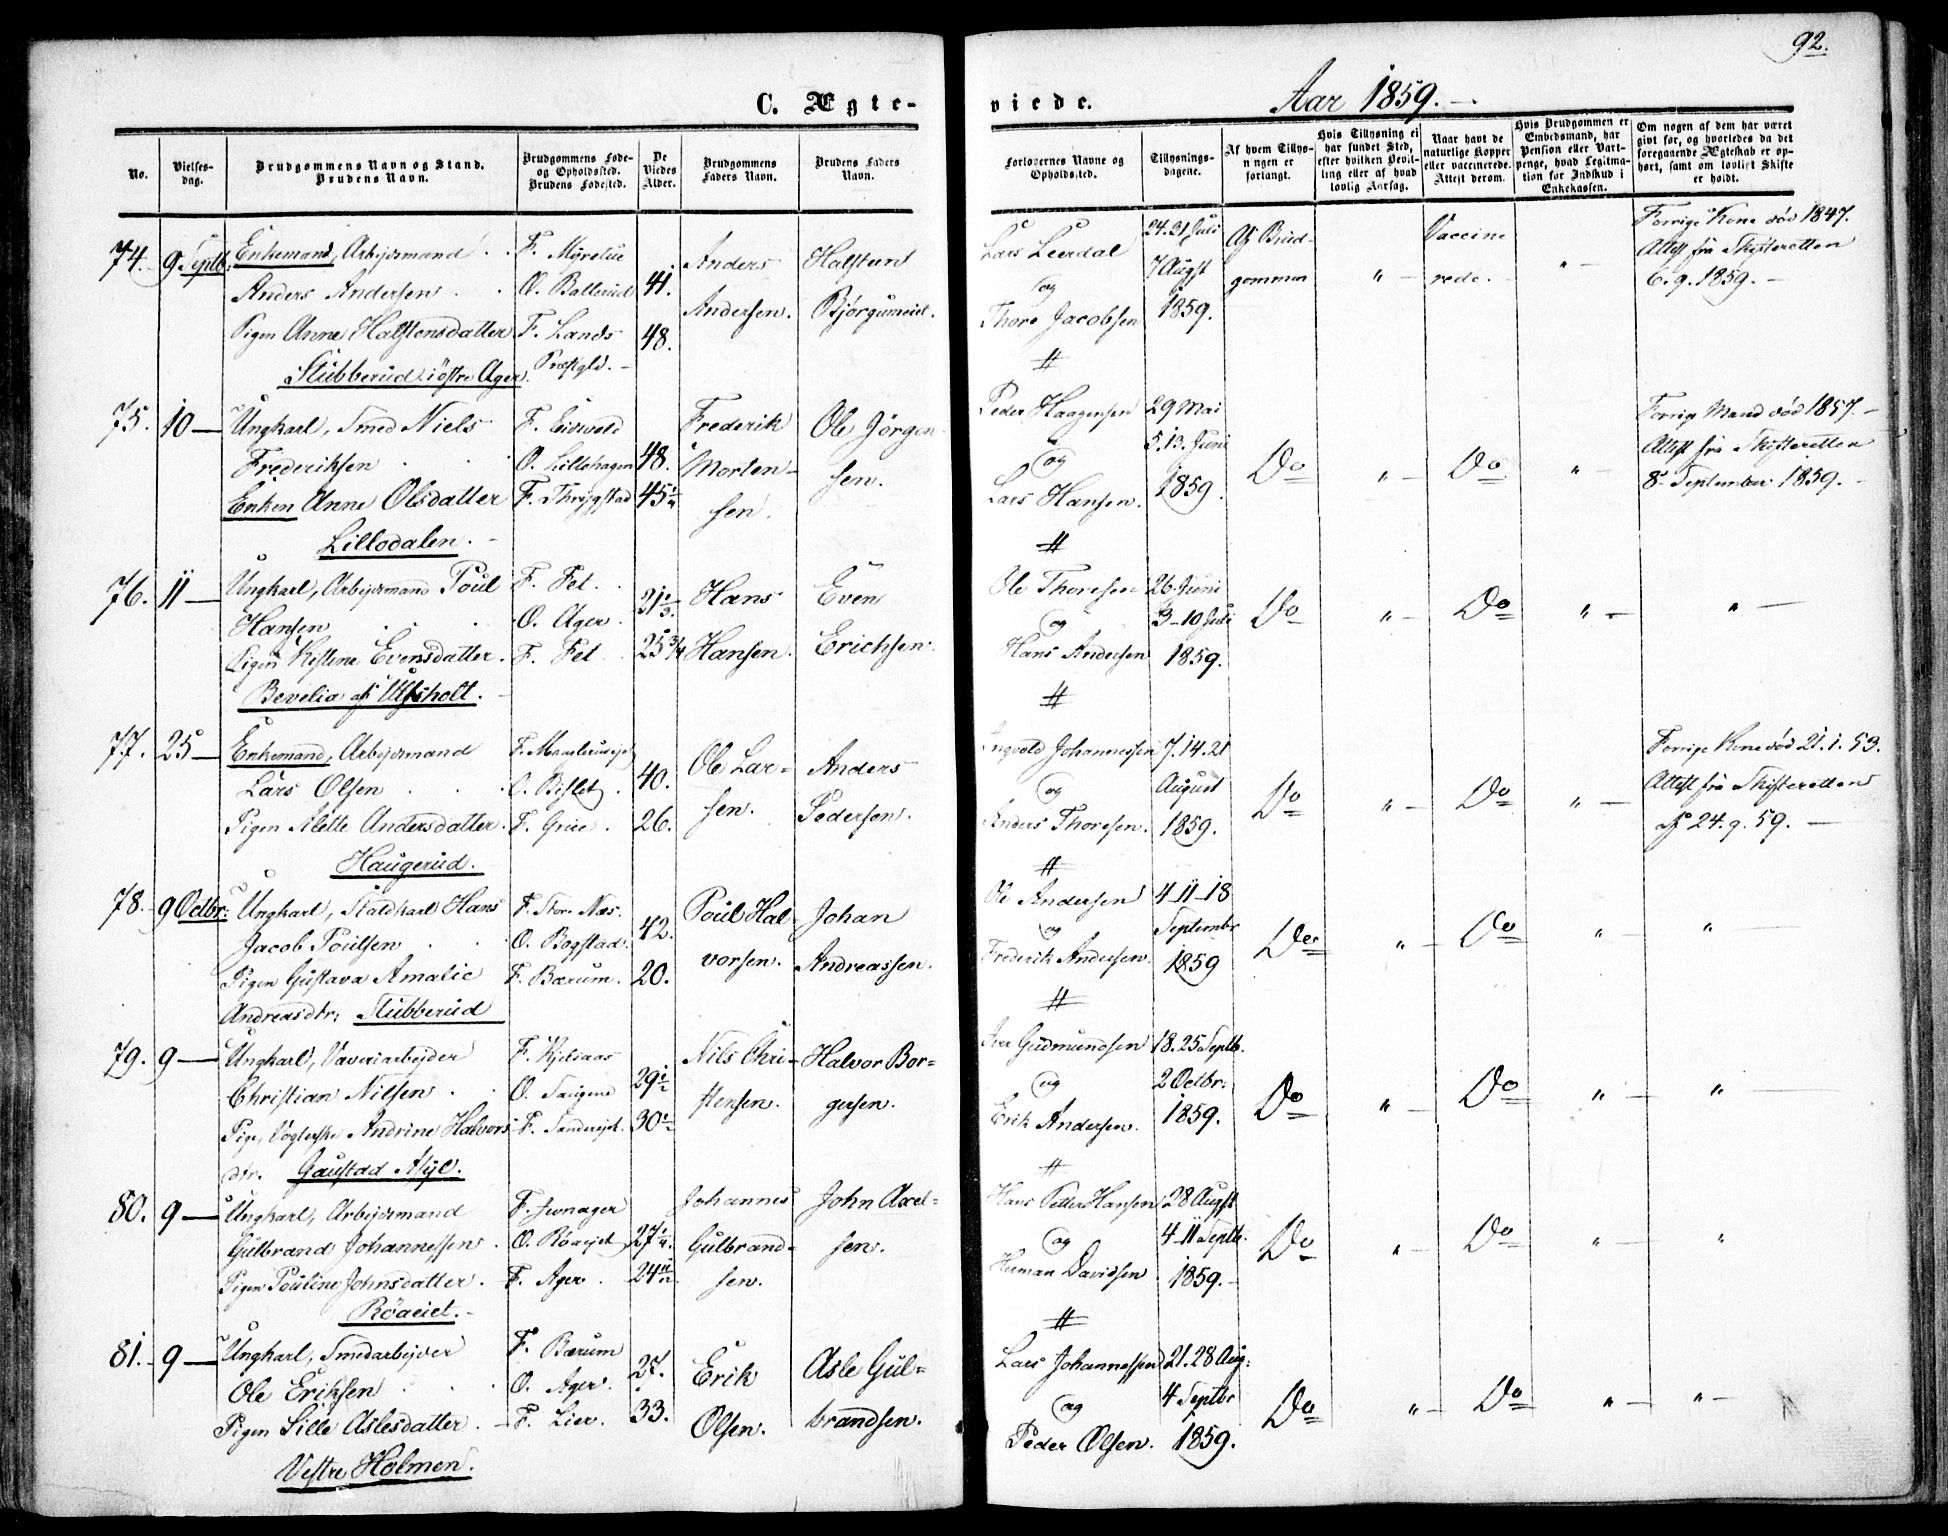 92.
C. Ægte-
viede.
Aar 1859.
No.
Vielses-
dag.
Brudgommens Navn og Stand.
Brudens Navn.
Brudgommens Føde-
og Opholdssted.
Brudens Fødested.
De
Viedes
Alder.
Brudgommens
Faders Navn.
Brudens Faders
Navn.
Forlovernes Navne og
Opholdssted.
Tillysnings-
dagene.
Af hvem Tillys-
ningen er
forlangt.
Hvis Tillysning ei
har fundet Sted,
efter hvilken Bevil-
ling eller af hvad
lovlig Aarsag.
Naar havt de
naturlige Kopper
eller vaccinerede.
Attest derom.
Hvis Brudgommen er
Embedsmand, har
Pension eller Vart-
penge, hvad Legitima-
tion for Indskud i
Enkekassen.
Om nogen af dem har været
givt før, og hvorledes da det
foregaaende Ægteskab er op-
hørt, samt om lovligt Skifte
er holdt.
74. 9 Septb. Enkemand, Arbejdsmand
Anders Andersen
Pigen Anne Halstensdatter
Stubberud i østre Ager.
F.
O. Ballerud
F. Lands
Præstgld.
41.
48.
Anders
Andersen.
Halsten
Lars Leerdal
og
Thore Jacobsen
24. 31 Juli
7 Augst
1859.
Af Brud-
gommen
" -
Vaccine
rede.
" -
Forrige Kone død 1847.
Attest fra Skifteretten
6. 9. 1859.
75. 10 - Ungkarl, Smed Niels
Frederiksen
Enken Anne Olsdatter
Lillodalen.
F. Eidsvold
O. Lillohagen
F.
48.
45 1/4
Frederik
Morten-
sen.
Ole Jörgen-
sen.
Peder Haagensen
og
Lars Hansen.
29 Mai
5. 13. Juni
1859.
Do
" -
Do
" -
Forrige Mand død 1857.
Attest fra Skifteretten
8 September 1859.
76. 11 - Ungkarl, Arbejdsmand Poul
Hansen
Pigen Kistine Evensdatter.
Bevelia af Ulfsholt.
F. Fet.
O. Ager.
F. Fet
25 3/4
Hans
Hansen.
Even
Erichsen.
Ole Thoresen
og
Hans Andersen
26 Juni
3 - 10 Juli
1859.
Do
" -
Do
" -
" -
77. 25 - Enkemand, Arbejdsmand
Lars Olsen
Pigen Alette Andersdatter.
Haugerud.
F.
O. Bislet
F. Grue.
40.
26.
Ole Lar-
sen.
Anders
Pedersen.
Ingvold Johannessen
og
Anders Thoresen.
7. 14. 21
August
1859.
Do
" -
Do
" -
Forrige Kone død 21. 1. 53.
Attest fra Skifteretten
af 24. 9. 59.
78. 9 Octbr: Ungkarl, Staldkarl Hans
Jacob Poulsen
Pigen Gustava Amalie
Andreasdtr: Stubberud
F. Stor. Næs.
O. Bogstad.
F. Bærum.
42.
20.
Poul Hal-
vorsen.
Johan
Andreassen.
Ole Andersen
og
Frederik Andersen.
4 - 11 - 18
Septembr
1859
Do
" -
Do
" -
" -
79. 9 - Ungkarl, Væveriarbejder
Christian Nilsen
Pig. Vogterske Andrine Halvors-
dtr. Gaustad Asyl.
F. Kjelsaas
O. Saugene
F. Sandvejet.
29 1/2
30 1/2
Nils Chri-
stensen.
Halvor Bor-
gersen.
Iver Gudmundsen
og
Erik Andersen.
18. 25 Septb.
2 Octbr.
1859.
Do
" -
Do
" -
" -
80. 9 - Ungkarl, Arbejdsmand
Gulbrand Johannessen
Pigen Pouline Johnsdatter.
Röaeiet.
F. Jevnager
O. Röaejet
F. Ager.
27 1/4.
24 11/12
Johannes
Gulbrand-
sen.
John Axel-
sen.
Hans Petter Hansen
og
Herman Davidsen
28 Augst
4 - 11 Septb.
1859.
Do
" -
Do
" -
"
81. 9 - Ungkarl, Smedarbejder
Ole Eriksen
Pigen Sille Aslesdatter.
Vestre Holmen.
F. Bærum
O. Ager.
F. Lier.
27.
33.
Erik
Olsen.
Asle Gul-
brandsen.
Lars Johannessen
og
Peder Olsen.
21. 28 Aug:
4 Septbr
1859.
Do
" -
Do
" -
" -